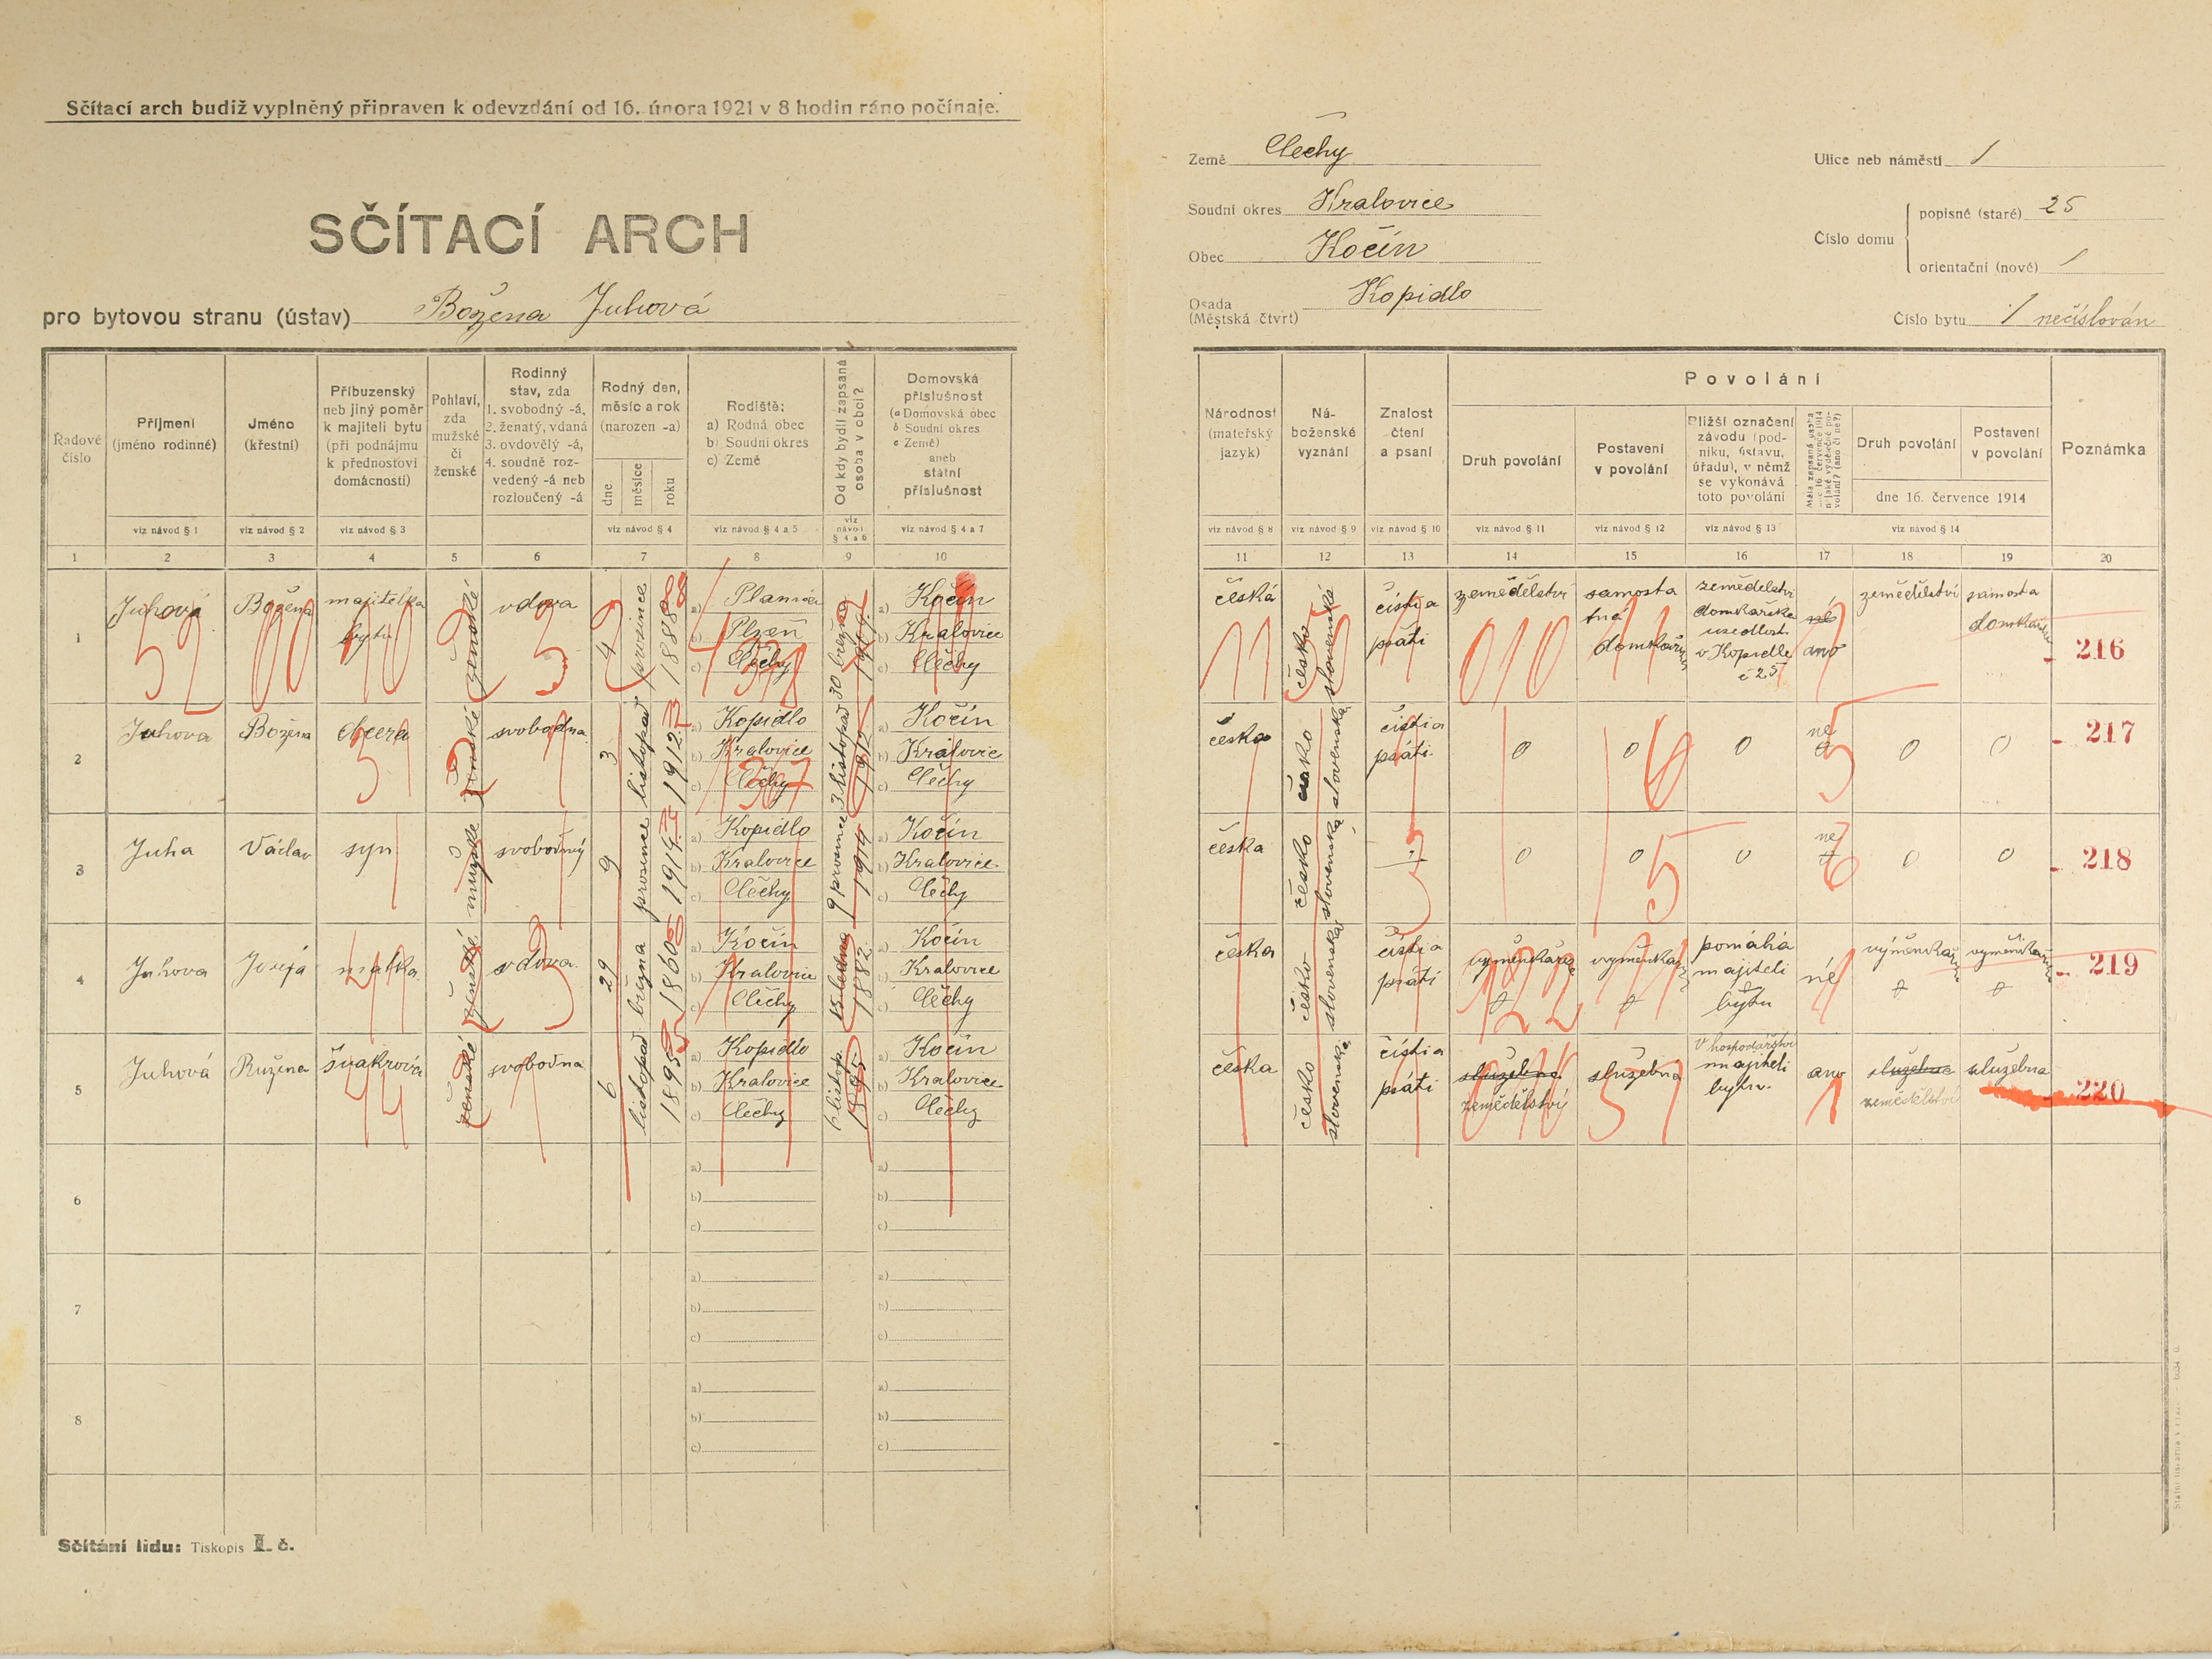 Sčítací arch budiž vyplněný připraven k odevzdání od 16. února 1921 v 8 hodin ráno počínaje.
SČÍTACÍ ARCH
pro bytovou stranu (ústav) Božena Juhová
Země Čechy
Soudní okres Kralovice
Obec Kočín
Osada (Městská čtvrť) Kopidlo
Ulice neb náměstí /
Číslo domu
popisné (staré) 25
orientační (nové) /
Číslo bytu / nečíslován
Řadové číslo
Příjmení (jméno rodinné)
Jméno (křestní)
Příbuzenský neb jiný poměr k majiteli bytu (při podnájmu k přednostovi domácnosti)
Pohlaví, zda mužské či ženské
Rodinný stav, zda 1. svobodný -á, 2. ženatý, vdaná 3. ovdovělý -á, 4. soudně rozvedený -á neb rozloučený -á
Rodný den, měsíc a rok (narozen -a)
dne
měsíce
roku
Rodiště: a) Rodná obec b) Soudní okres c) Země
Od kdy bydlí zapsaná osoba v obci?
Domovská příslušnost (a Domovská obec b Soudní okres c Země) aneb státní příslušnost
viz návod § 1
viz návod § 2
viz návod § 3
viz návod § 4
viz návod § 4 a 5
viz návod § 4 a 6
viz návod § 4 a 7
1 2 3 4 5 6 7 8 9 10
Národnost (mateřský jazyk)
Náboženské vyznání
Znalost čtení a psaní
Povolání
Druh povolání
Postavení v povolání
Bližší označení závodu (podniku, ústavu, úřadu), v němž se vykonává toto povolání
Druh povolání
Postavení v povolání
dne 16. července 1914
Poznámka
viz návod § 8
viz návod § 9
viz návod § 10
viz návod § 11
viz návod § 12
viz návod § 13
viz návod § 14
11 12 13 14 15 16 17 18 19 20
1
Juhová
Božena
majitelka
bytu
ženské
vdova
4
prosince
1888
a)
b) Plzeň
c) Čechy
30 března
a) Kočín
b) Kralovice
c) Čechy
česká
česko
slovenské
čísti a
psáti
zemědělství
samosta
tná
zemědelství
domkářska
usedlost
v Kopidle
č 25
ne
ano
zemědělství
samosta
216
2
Juhova
Božena
dcera
ženské
svobodna
3
listopad
1912
a) Kopidlo
b) Kralovice
c) Čechy
3 listopad
1912
a) Kočín
b) Kralovic
c) Čechy
česka
česko
slovenská
čísti a
psáti
0
0
0
ne
0
0
217
3
Juha
Václav
syn
mužske
svobodný
9
prosinec
1914
a) Kopidlo
b) Kralovice
c) Čechy
9 prosince
1914
a) Kočín
b) Kralovice
c) Čechy
česka
česko
slovenská
0
0
0
ne
0
0
218
4
Juhova
Josefa
matka
ženské
vdova
29
března
1860
a) Kočín
b) Kralovic
c) Čechy
15 ledna
1882
a) Kočín
b) Kralovice
c) Čechy
česka
česko
slovenská
čísti a
psáti
pomáhá
majiteli
bytu
né
219
5
Juhová
Ružena
švakrová
ženské
svobodna
6
listopad
1895
a) Kopidlo
b) Kralovice
c) Čechy
6 listop.
1895
a) Kočín
b) Kralovice
c) Čechy
česka
česko
slovenská
čísti a
psáti
služebna
zemědělství
služebna
v hospodářství
majiteli
bytu
ano
služebna
zemědělství
služebna
220
6
a)
b)
c)
a)
b)
c)
7
a)
b)
c)
a)
b)
c)
8
a)
b)
c)
a)
b)
c)
Sčítání lidu: Tiskopis I. č.